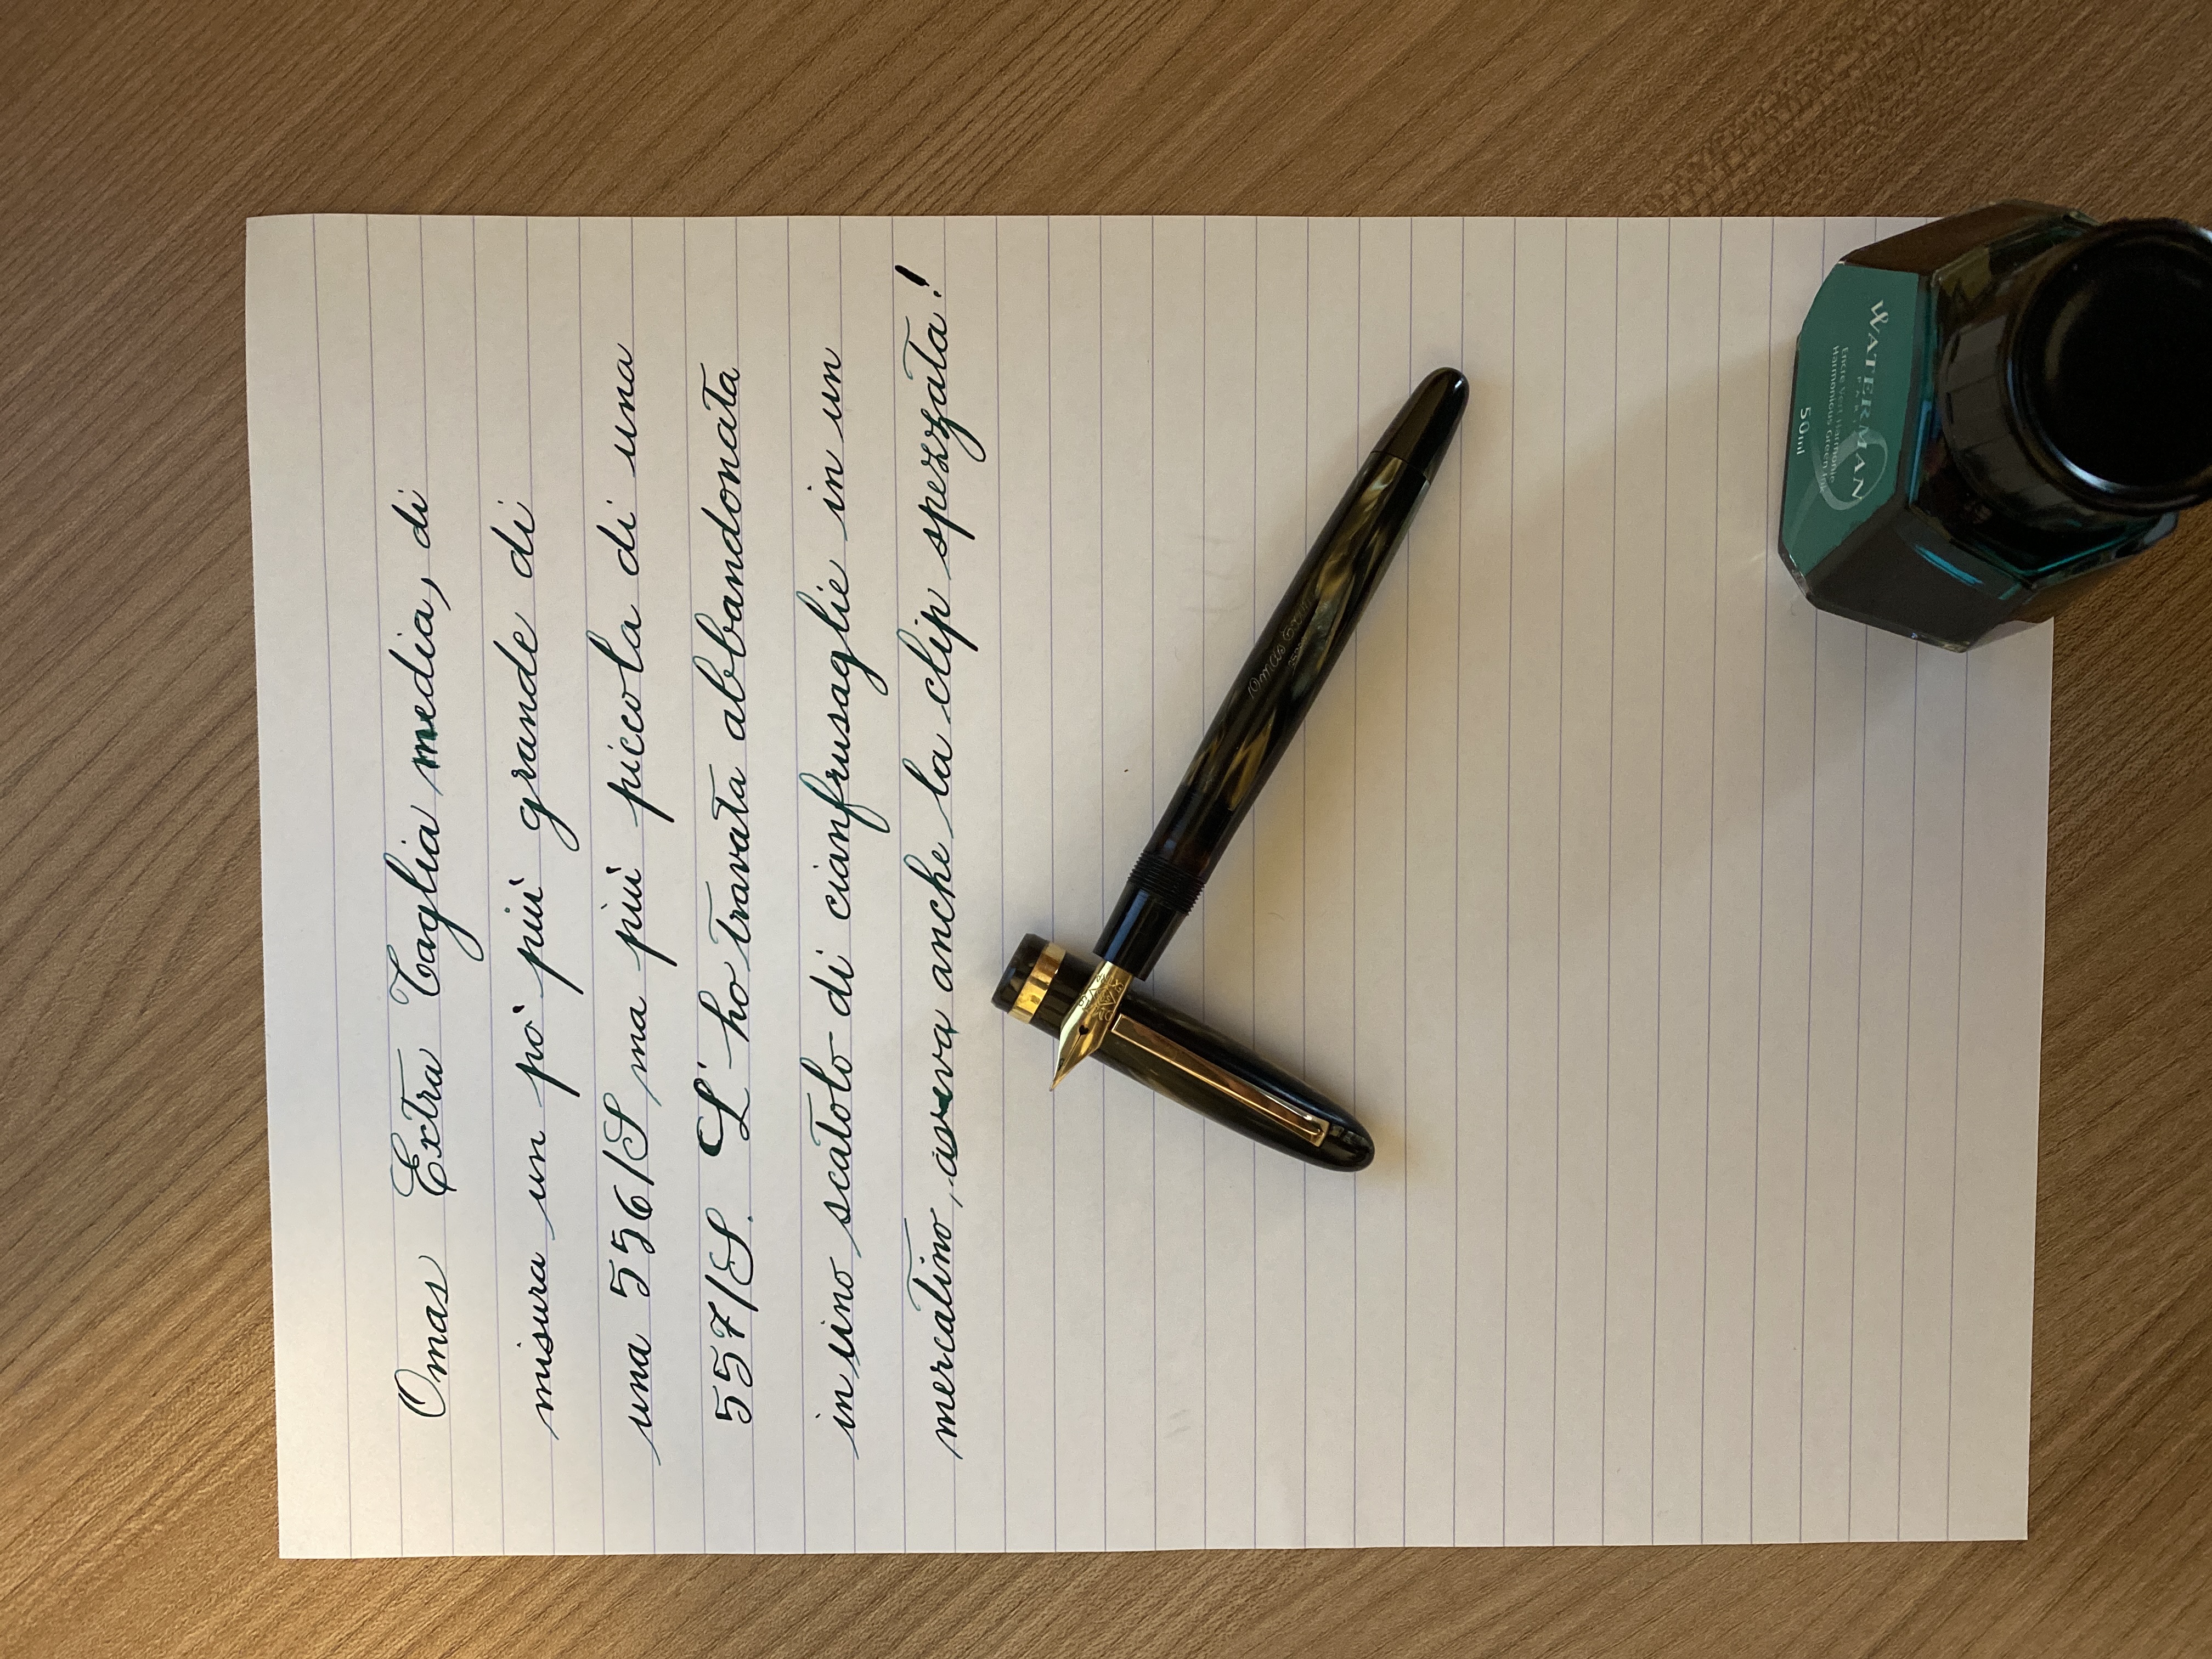 Omas Extra Taglia media, di
misura un po' più grande di
una 556/S ma più piccola di una
557/S. L'ho trovata abbandonata
in uno scatolo di cianfrusaglie in un
mercatino, aveva anche la clip spezzata!
Omas Extra
WATERMAN
PARIS
Encre Vert Harmonie
Harmonious Green Ink
50ml